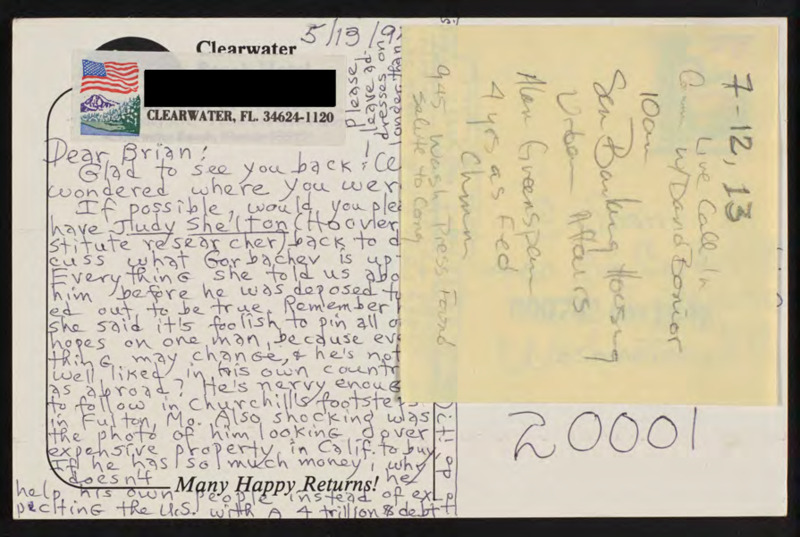 Clearwater
5/13/9
please
leave ad-
dresses on
CLEARWATER, FL. 34624-1120
Dear Brian:
Glad to see you back
wondered where you wer
If possible, would you plea
have Judy Shelton (Hoover
stitute researcher) back to d
cuss what Gorbachev is up
Everything she told us abo
him before he was deposed t
ed out to be true. Remember
she said it's foolish to pin all o
hopes on one man, because ev
thing may change, & he's not
well liked in his own countr
as abroad? He's nervy enoug
to follow in Churchill's footste
in Fulton, Mo. Also shocking was
the photo of him looking over
expensive property in Calif. to buy
If he has so much money, why
doesn't he
Many Happy Returns!
help his own people instead of ex
pecting the U.S. with a 4 trillion $ debt
7-12, 13
Live Call In
w/David Bonior
10am
Sen Banking Housing
Urban Affairs
Alan Greenspan
4 yrs as Fed
Chmn
9:45 Wash Press Found
salute to Cong
20001